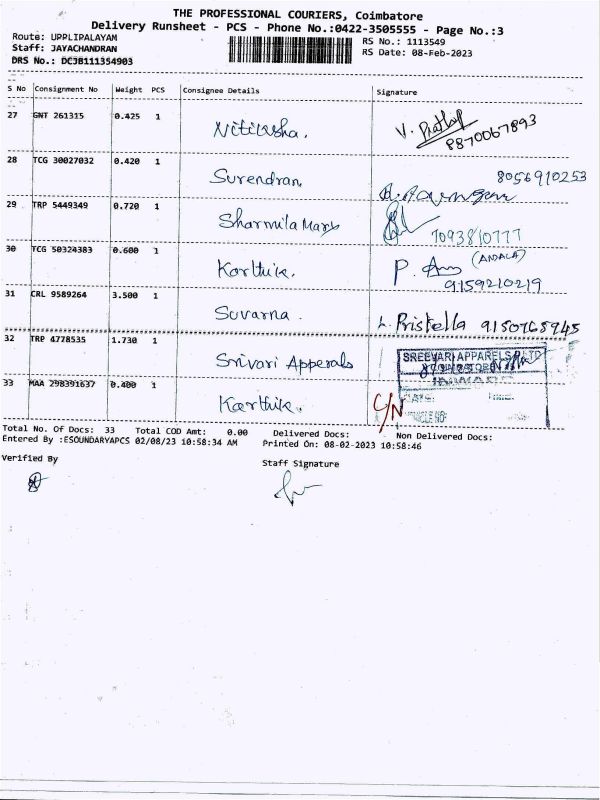 THE PROFESSIONAL COURIERS, Coimbatore
Delivery Runsheet - PCS - Phone No.:0422-3505555 - Page No.:3
Route: UPPLIPALAYAM RS No.: 1113549
Staff: JAYACHANDRAN RS Date: 08-Feb-2023
DRS No.: DCJB111354903
S No Consignment No Weight PCS Consignee Details Signature
27 GNT 261315 0.425 1 V. Prathap
8870067893
28 TCG 30027032 0.420 1 Surendran 8056910253
29 TRP 5449349 0.720 1 Sharmila Mary 7093810777
30 TCG 50324383 0.600 1 Karthik. P. (ANDALA)
9159210219
31 CRL 9589264 3.500 1 Suvarna. L. Pristella 9150768945
32 TRP 4778535 1.730 1 Srivari Apperals SREEVARI APPARELS P LTD
INWARD
33 MAA 298391637 0.400 1 Karthik. C/N DATE: TIME:
VEHICLE NO:
Total No. Of Docs: 33 Total COD Amt: 0.00 Delivered Docs: Non Delivered Docs:
Entered By :ESOUNDARYAPCS 02/08/23 10:58:34 AM Printed On: 08-02-2023 10:58:46
Verified By Staff Signature